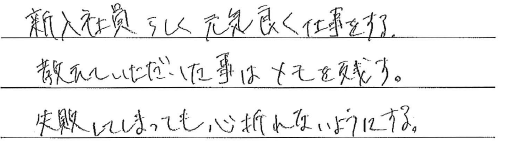 新入社員らしく元気良く仕事をする.
教えていただいた事はメモを残す。
失敗してしまっても心折れないようにする。